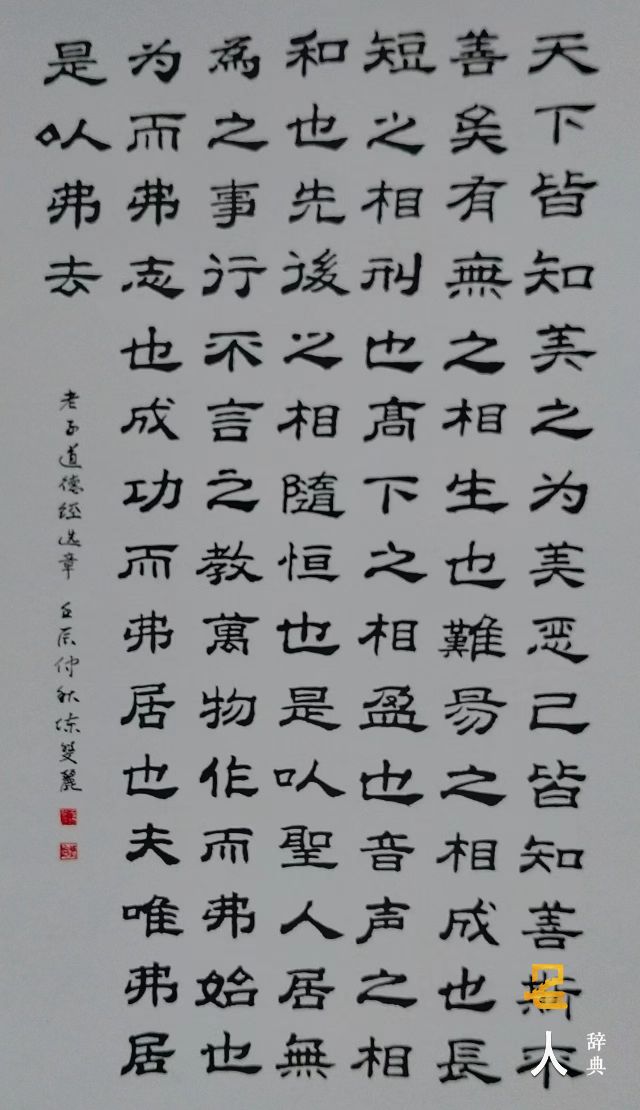 天下皆知美之为美恶已皆知善斯不
善矣有無之相生也難易之相成也長
短之相刑也髙下之相盈也音声之相
和也先後之相隨恒也是以聖人居無
為之事行不言之教萬物作而弗始也
为而弗志也成功而弗居也夫唯弗居
是以弗去
老子道德經选章 壬辰仲秋陈麗
名人
辞典